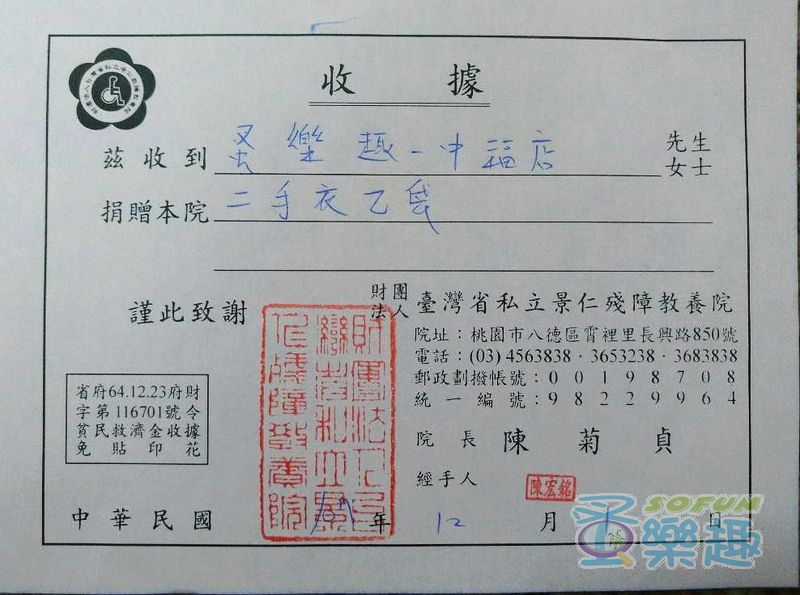 收據
茲收到 蛋樂趣-中福店 先生女士
捐贈本院 二手衣乙袋
謹此致謝
財團法人 臺灣省私立景仁殘障教養院
院址：桃園市八德區霄裡里長興路850號
電話：(03) 4563838・3653238・3683838
郵政劃撥帳號：00198708
統一編號：98229964
院長 陳菊貞
經手人 陳宏銘
省府64.12.23府財
字第116701號令
貧民救濟金收據
免貼印花
財團法人台灣省私立景仁殘障教養院
中華民國 年 12 月 日
SOFUN
蛋樂趣